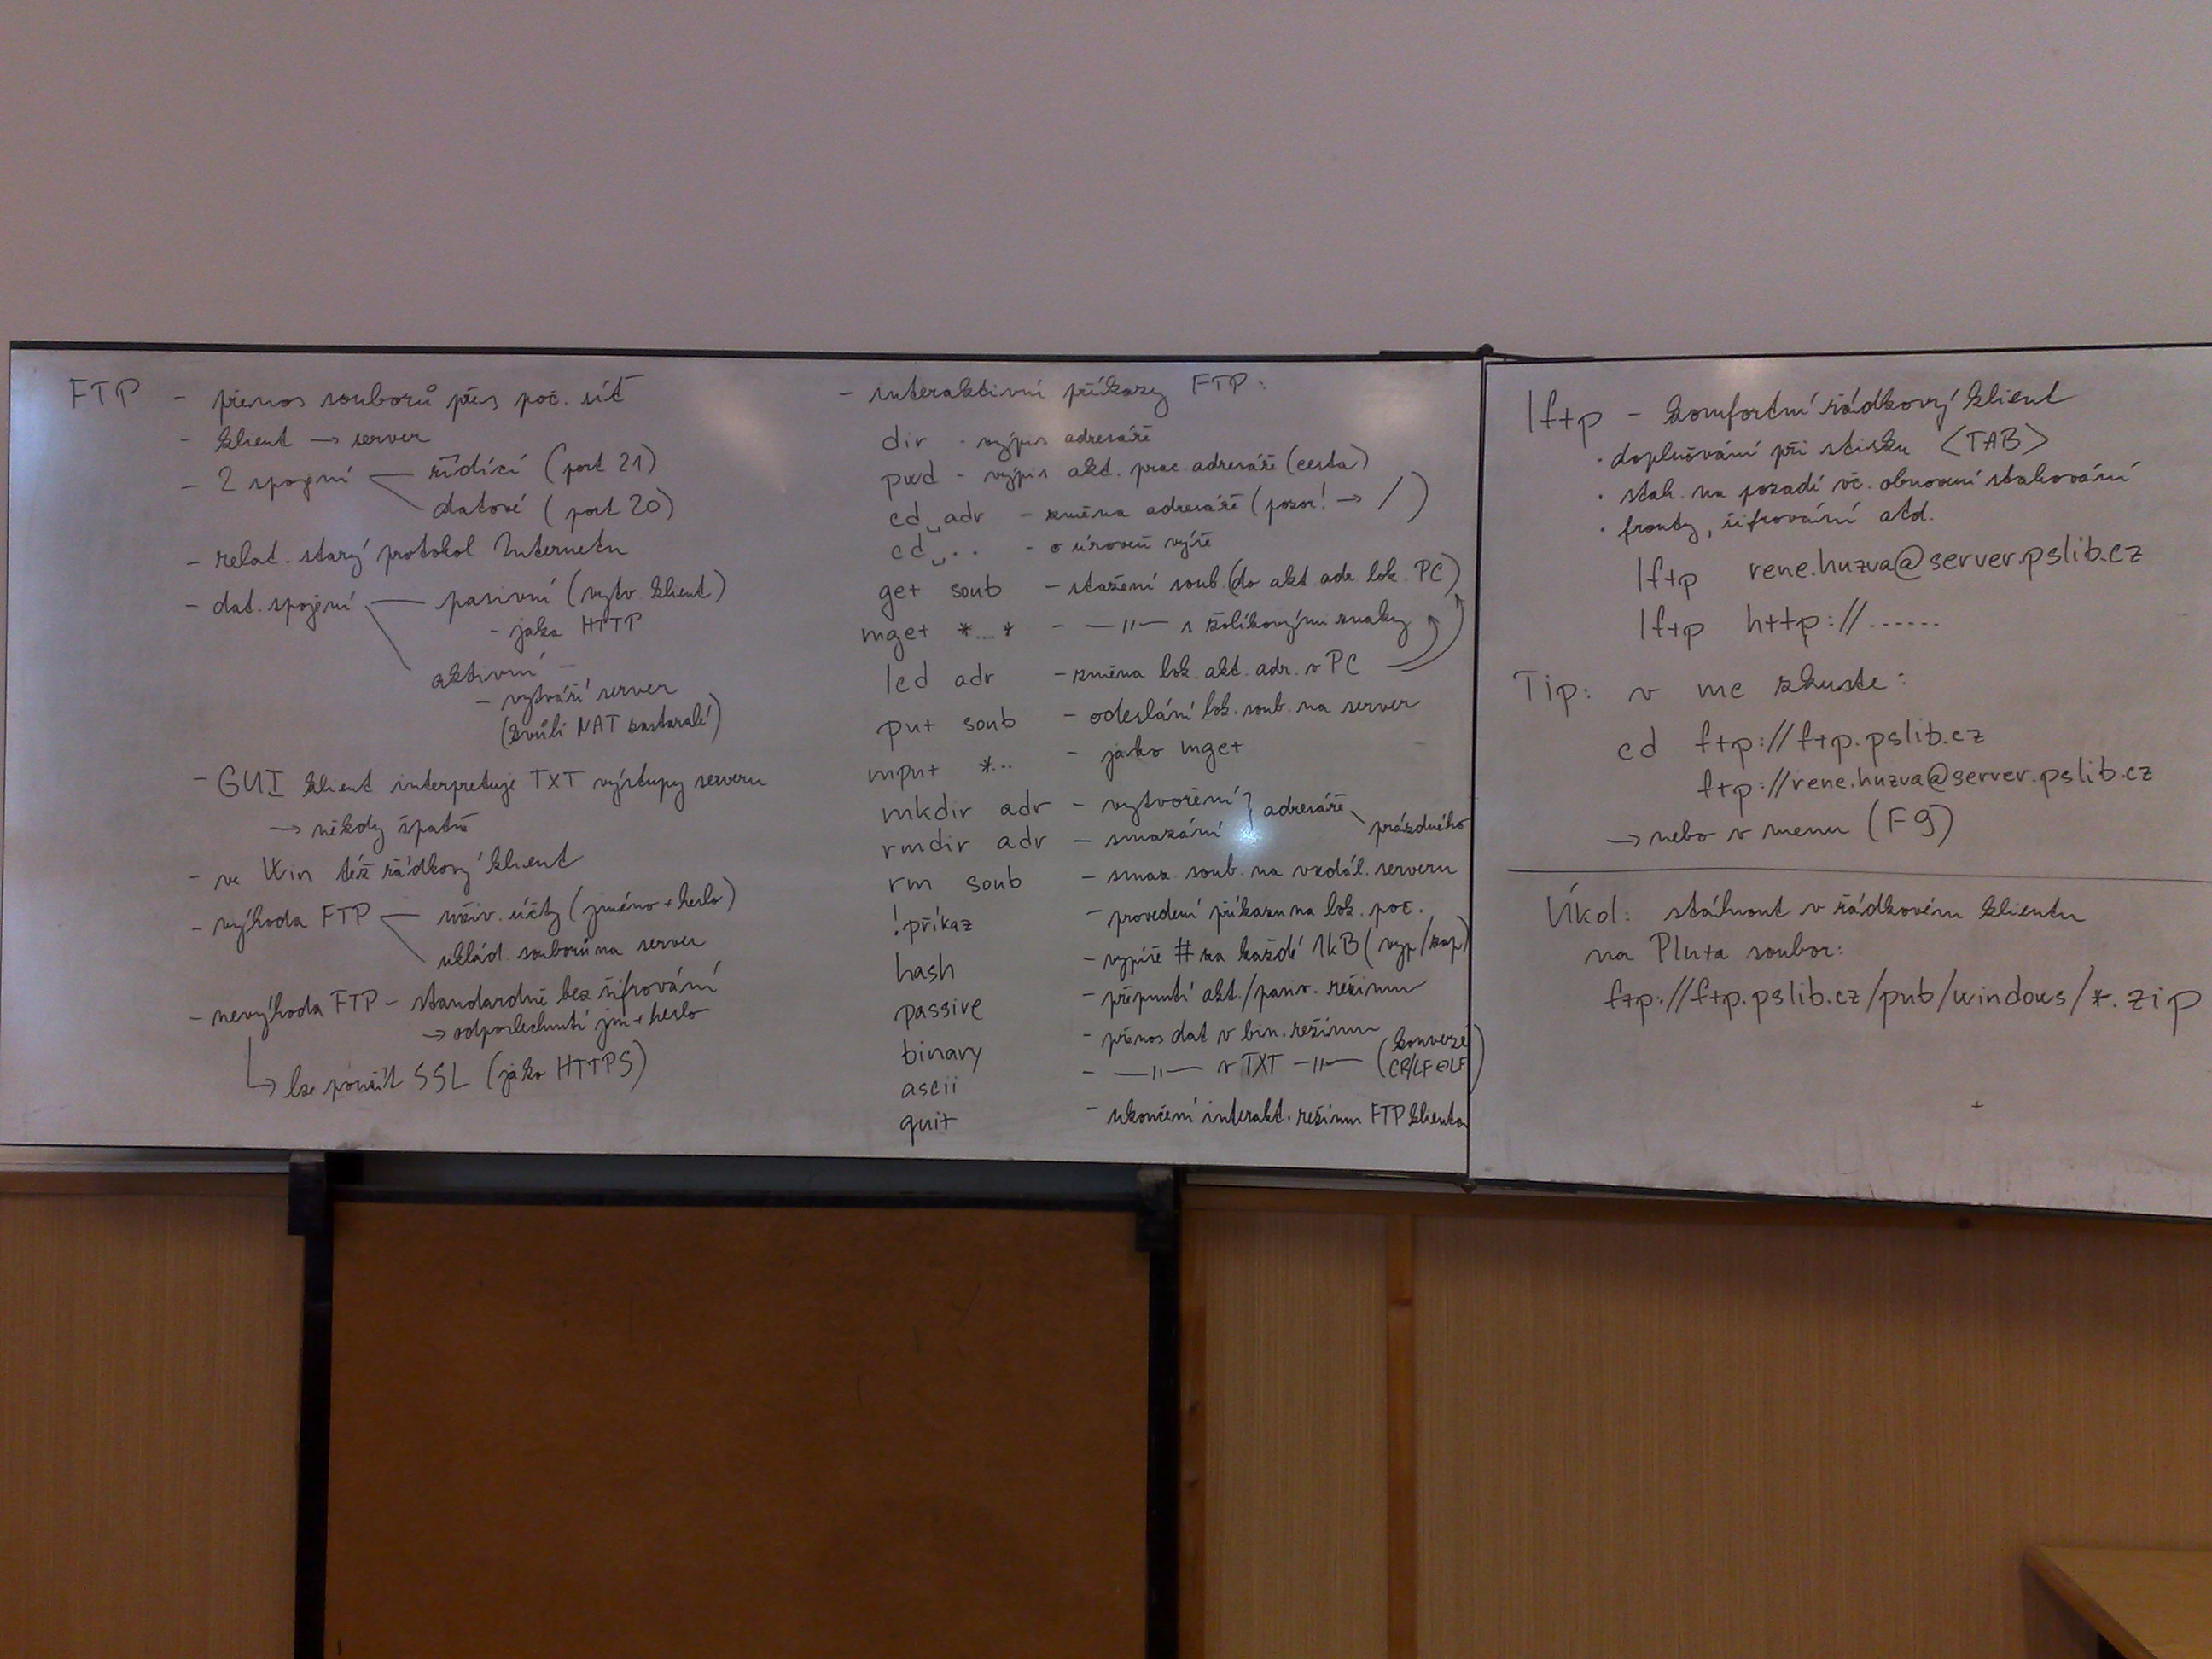 FTP - přenos souborů přes poč. síť
- klient → server
- 2 spojení — řídící (port 21)
datové (port 20)
- relat. starý protokol Internetu
- dat. spojení — pasivní (vytv. klient)
- jako HTTP
aktivní
- vytváří server
(kvůli NAT zastaralé)
- GUI klient interpretuje TXT výstupy serveru
→ někdy špatně
- ve Win též řádkový klient
- výhoda FTP — uživ. účty (jméno + heslo)
uklád. souborů na server
- nevýhoda FTP - standardně bez šifrování
→ odposlechnutí jm + heslo
↳ lze použít SSL (jako HTTPS)
- interaktivní příkazy FTP:
dir - výpis adresáře
pwd - výpis akt. prac. adresáře (cesta)
cd␣adr - změna adresáře (pozor! → /)
cd␣.. - o úroveň výše
get soub - stažení soub. (do akt. adr. lok. PC)
mget *...* - —〃— s žolíkovými znaky
lcd adr - změna lok. akt. adr. v PC
put soub - odeslání lok. soub. na server
mput *... - jako mget
mkdir adr - vytvoření } adresáře
rmdir adr - smazání prázdného
rm soub - smaz. soub. na vzdál. serveru
!příkaz - provedení příkazu na lok. poč.
hash - vypíše # za každé 1kB (vyp/zap)
passive - přepnutí akt./pasiv. režimu
binary - přenos dat v bin. režimu
ascii - —〃— v TXT —〃— (konverze CR/LF↔LF)
quit - ukončení interakt. režimu FTP klienta
lftp - komfortní řádkový klient
· doplňování při stisku <TAB>
· stah. na pozadí vč. obnovení stahování
· fronty, šifrování atd.
lftp rene.huzva@server.pslib.cz
lftp http://......
Tip: v mc zkuste:
cd ftp://ftp.pslib.cz
ftp://rene.huzva@server.pslib.cz
→ nebo v menu (F9)
Úkol: stáhnout v řádkovém klientu
na Pluta soubor:
ftp://ftp.pslib.cz/pub/windows/*.zip